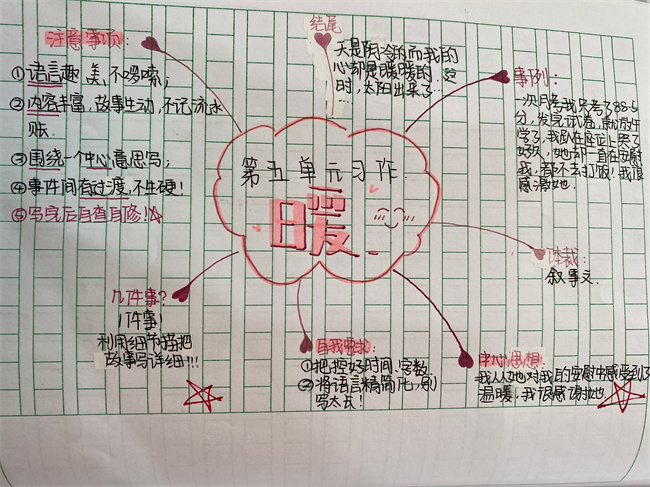 注意事项:
①语言趣,美,不啰嗦;
②内容丰富,故事生动,不记流水
账.
③围绕一个中心意思写;
④事件间有过渡,不生硬!
⑤写完后自查自修!
结尾
天是阴冷的而我的
心却是暖暖的.这
时,太阳出来了…
事例:
一次月考我只考了88.5
分,发完试卷,就放午
学了,我趴在座位上哭了
好久,她却一直在安慰
我,都不去打饭!我很
感激她.
第五单元习作
暖
体裁:
叙事文.
几件事?
1件事!
利用细节描把
故事写详细!!!
自我要求:
①把控好时间.字数
②将语言精简化,别
写太长!
中心思想:
我从她对我的安慰中感受到了
温暖,我很感谢她.